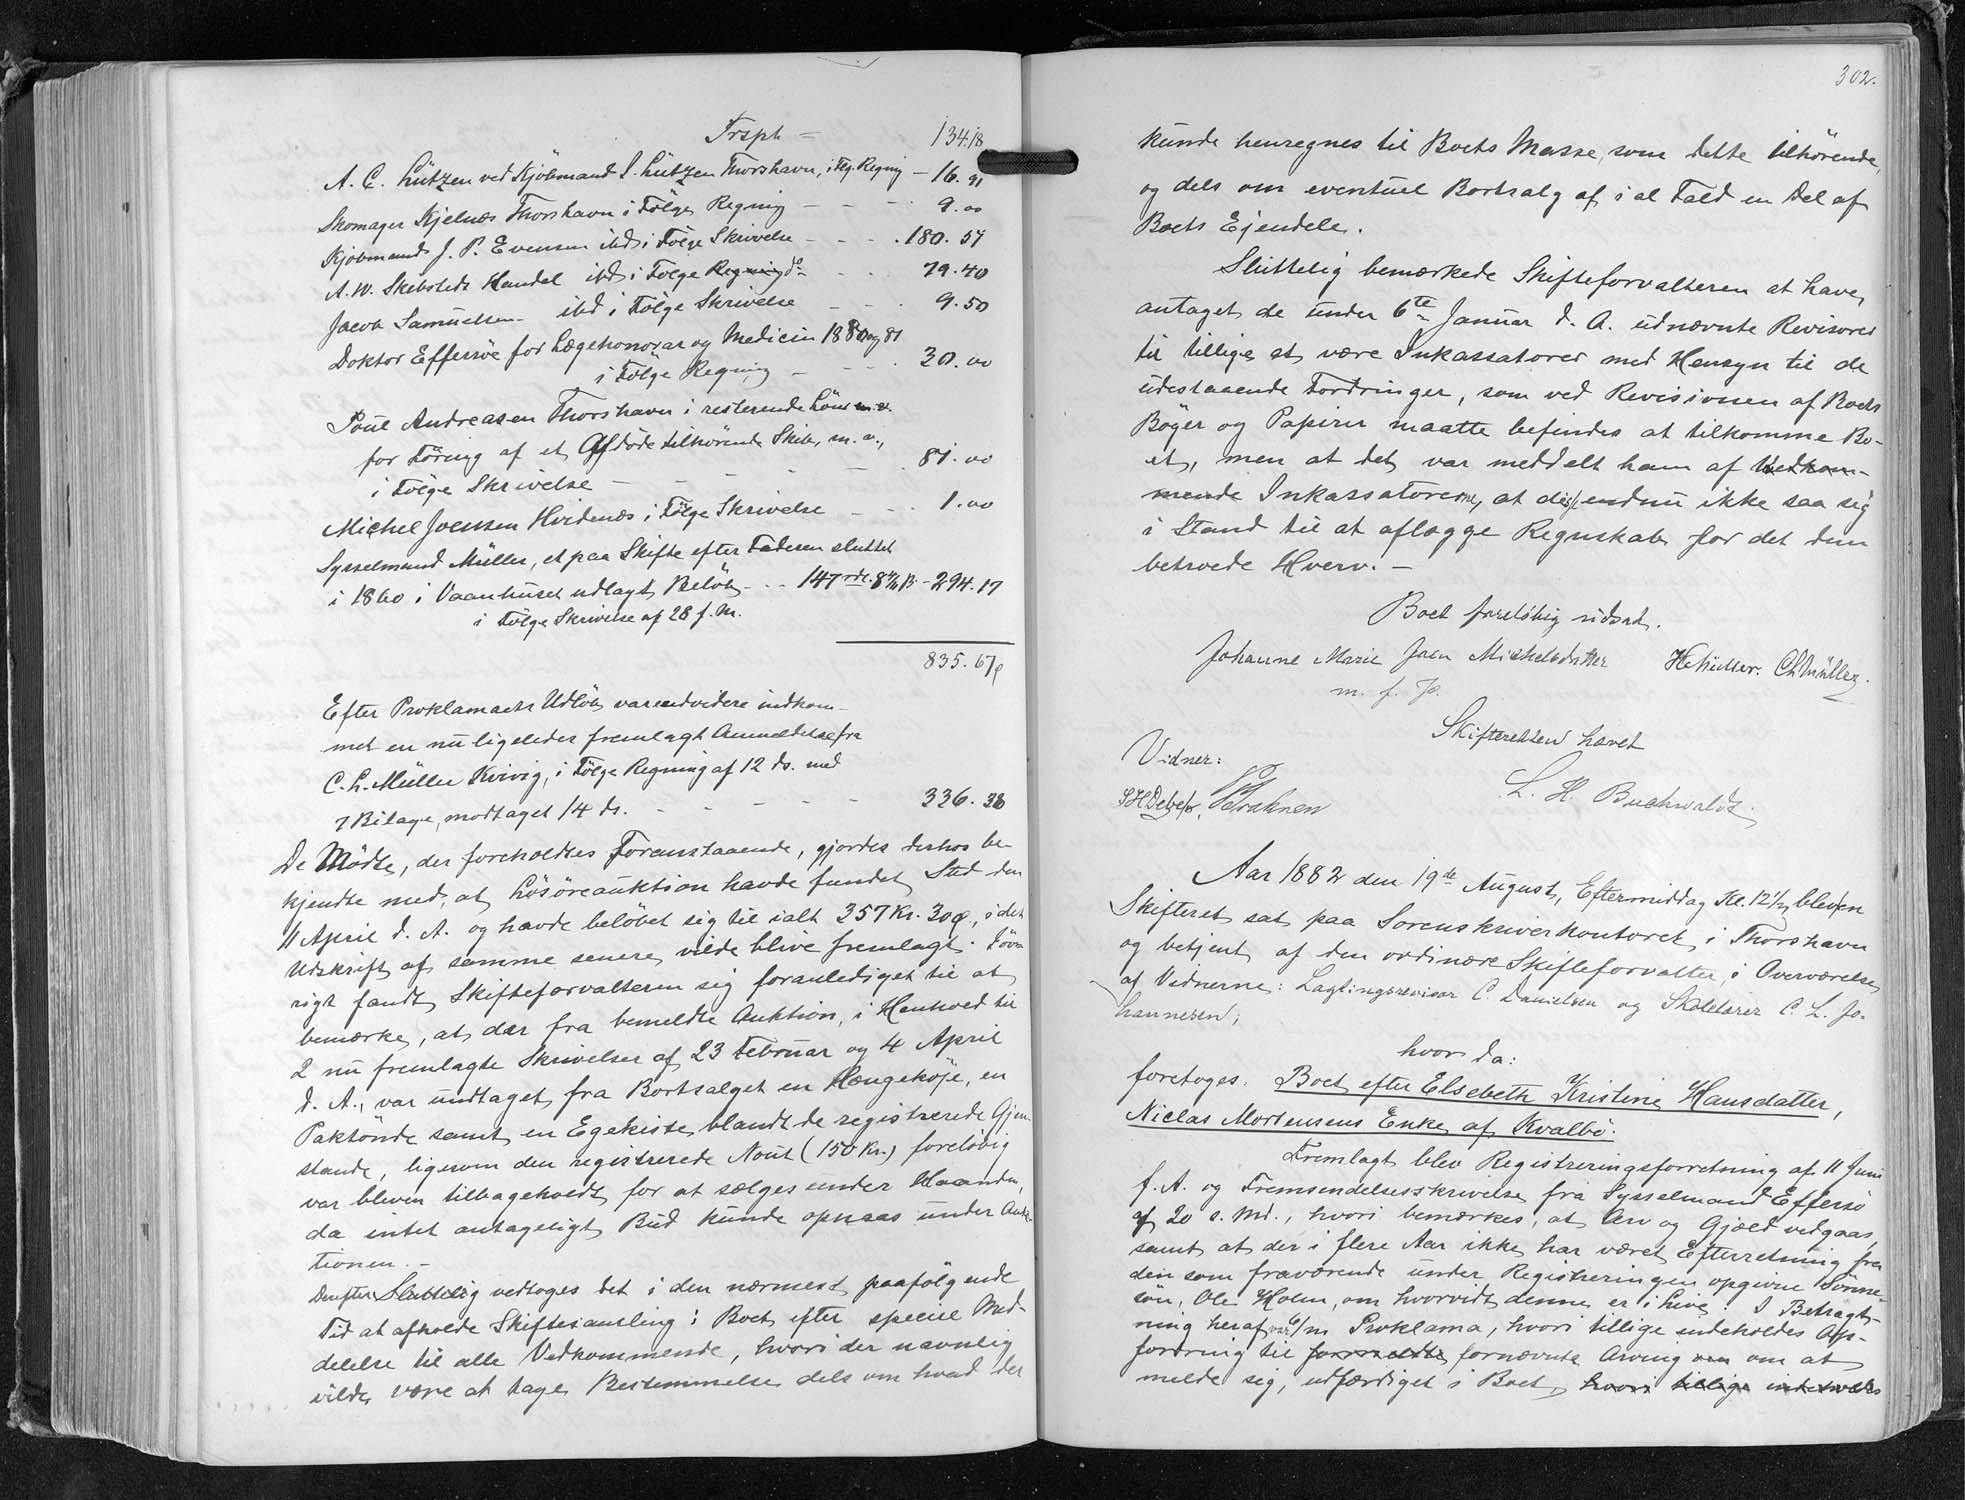 Trspt = 134.18
A. C. Lützen ved Kjöbmand J. Lützen Thorshavn, i Flg. Regning – 16. 91
Skomager Kjelnæs Thorshavn i Følge Regning – – – 9. 00
Kjöbmand J. P. Evensen ibd. i Følge Skrivelse – – – 180. 57
A. W. Skibsteds Handel ibd. i Følge Regning do – – 79. 40
Jacob Samuelsen ibd i Følge Skrivelse – – – 9. 50
Doktor Effersöe for Lægehonorar og Medicin 1880 og 81
i Følge Regning – – – 30. 00
Poul Andreasen Thorshavn i resterende Lön m. v.
for Föring af et Afdöde tilhörende Skib, m. v.,
i Følge Skrivelse – – – – 81. 00
Michel Joensen Hvidenæs i Følge Skrivelse – – 1. 00
Sysselmand Müller, et paa Skifte efter Faderen sluttet
i 1860 i Vaanhuset udlagt Belöb – – 147 rdl. 8 ß. – 294. 17
i Følge Skrivelse af 28 f. M.
835. 67
Efter Proklamaets Udløb var endvidere indkom-
met en nu ligeledes fremlagt Anmeldelse fra
C. L. Müller Kvivig, i Følge Regning af 12 ds. med
7 Bilage, modtaget 14 ds. – – – – – 336. 38
De Mödte, der foreholdtes Foranstaaende, gjordes derhos be-
kjendte med, at Lösöreauktion havde fundet Sted den
11 April d. A. og havde belöbet sig til ialt 357 Kr. 30 ø, idet
Udskrift af samme senere vilde blive fremlagt. Iöv-
rigt fandt Skifteforvalteren sig foranlediget til at
bemærke, at der fra bemeldte Auktion, i Henhold til
2 nu fremlagte Skrivelser af 23 Februar og 4 April
d. A., var undtaget fra Bortsalget en Hængeköje, en
Paktönde samt en Egekiste blandt de registrerede Gjen-
stande, ligesom den registrerede Nout (150 Kr.) foreløbig
var bleven tilbageholdt for at sælges under Haanden,
da intet antageligt Bud kunde opnaas under Auk-
tionen. –
Derefter Sluttelig vedtoges det i den nærmest paafølgende
Tid at afholde Skiftesamling i Boet efter speciel Med-
delelse til alle Vedkommende, hvori der navnlig
vilde være at tage Bestemmelse dels om hvad der
302.
kunde henregnes til Boets Masse, som dette tilhörende,
og dels om eventuel Bortsalg af i al Fald en Del af
Boets Ejendele.
Sluttelig bemærkede Skifteforvalteren at have
antaget de under 6te Januar d. A. udnævnte Revisorer
til tillige at være Inkassatorer med Hensyn til de
udestaaende Fordringer, som ved Revisionen af Boets
Böger og Papirer maatte befindes at tilkomme Bo-
et, men at det var meddelt ham af Vedkom-
mende Inkassatorerne, at disse endnu ikke saa sig
i Stand til at aflægge Regnskab for det dem
betroede Hverv. –
Boet foreløbig udsat.
Johanne Marie Joen Michelsdatter H. Müller. C L Müller.
m. f. P.
Skifteretten hævet
Vidner: L. H. Buchwaldt.
Aar 1882 den 19de August, Eftermiddag Kl. 12 1/2, blev en
Skifteret sat paa Sorenskriverkontoret i Thorshavn
og betjent af den ordinære Skifteforvalter, i Overværelse
af Vidnerne: Lagtingsrevisor C. Danielsen og Skolelærer C. L. Jo-
hannesen,
hvor da:
foretoges. Boet efter Elsebeth Kristine Hansdatter,
Niclas Mortensens Enke af Kvalbö.
Fremlagt blev Registreringsforretning af 11 Juni
f. A. og Fremsendelsesskrivelse fra Sysselmand Effersö
af 20 s. Md., hvori bemærkes, at Arv og Gjæld vedgaas,
samt at der i flere Aar ikke har været Efterretning fra
den som fraværende under Registreringen opgivne Sönne-
sön, Ole Holm, om hvorvidt denne er i Live. I Betragt-
ning heraf var Proklama, hvori tillige indeholdes Op-
fordring til formeldte fornævnte Arving om at
melde sig, udfærdiget i Boet, hvori tillige indeholdes